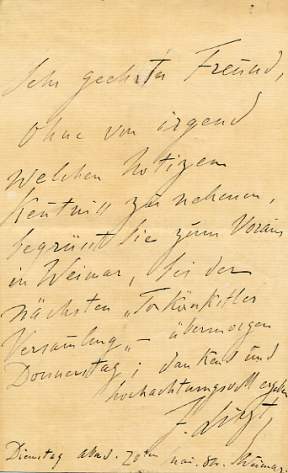 Sehr geehrter Freund,
Ohne von irgend
welchen Notizen
Kentniss zu nehmen,
begrüsst Sie zum Voraus
in Weimar, bei der
nächsten „Tonkünstler
Versamlung„ – übermorgen
Donnerstag; dankend und
hochachtungsvoll ergeben
F. Liszt,
Dienstag abends. 20ten mai. Weimar.